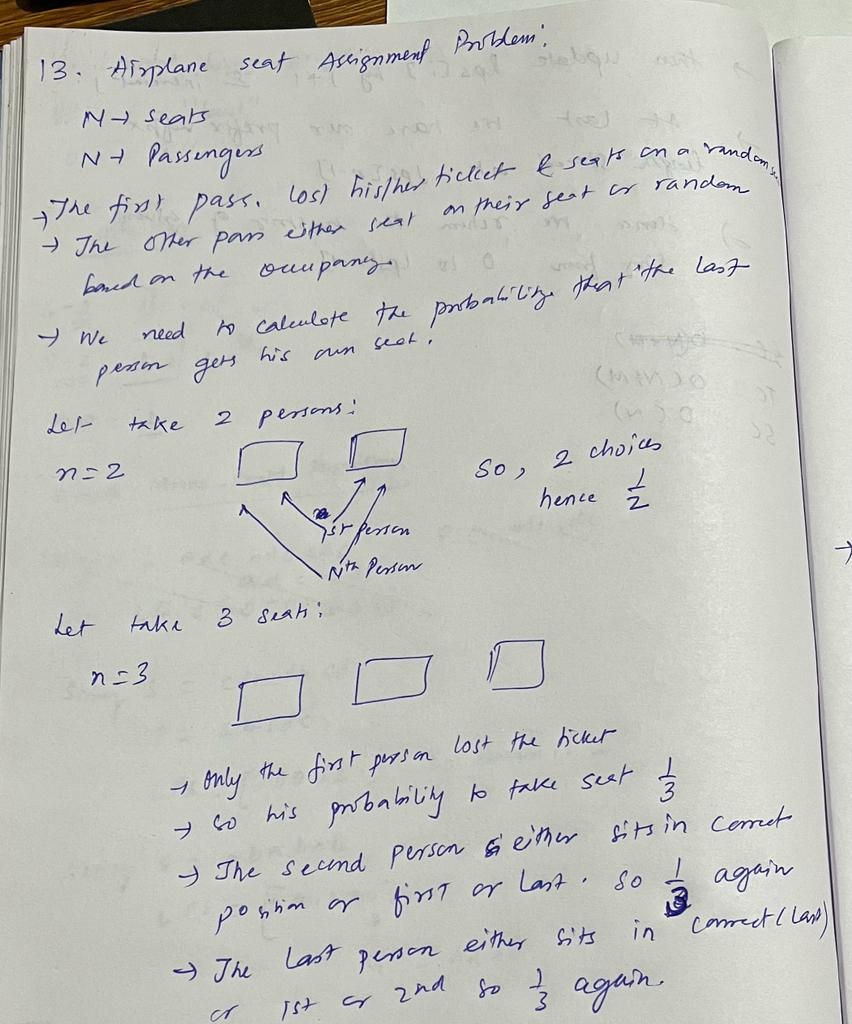 13. Airplane seat Assignment Problem:
N → seats
N → Passengers
→ The first pass. lost his/her ticket & seats on a random
→ The other pass either seat on their seat or random
based on the occupancy.
→ We need to calculate the probability that the last
person gets his own seat.
Let take 2 persons:
n=2
So, 2 choices
hence 1/2
1st person
Nth Person
Let take 3 seats:
n=3
→ Only the first person lost the ticket
→ So his probability to take seat 1/3
→ The second person either sits in correct
position or first or last. so 1/3 again
→ The last person either sits in correct (last)
or 1st or 2nd so 1/3 again.